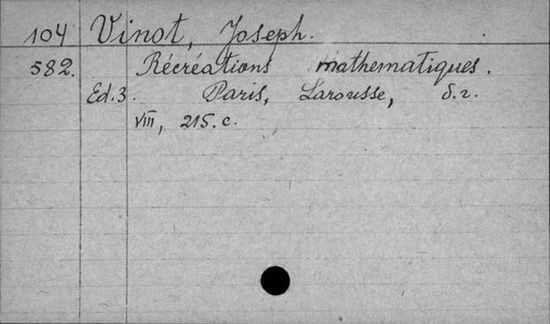 104 Vinot, Joseph.
582. Récréations mathematiques.
Ed. 3. Paris, Larousse, s.r.
VIII, 215.c.